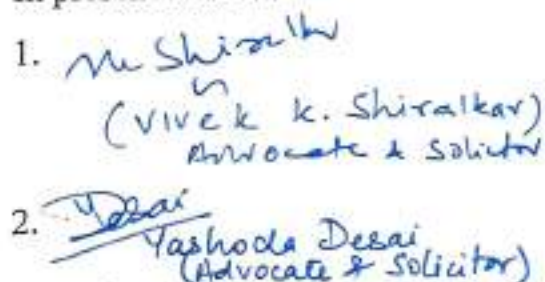 1. Shiralkar
(Vivek K. Shiralkar)
Advocate & Solicitor
2. Desai
Yashoda Desai
(Advocate & Solicitor)